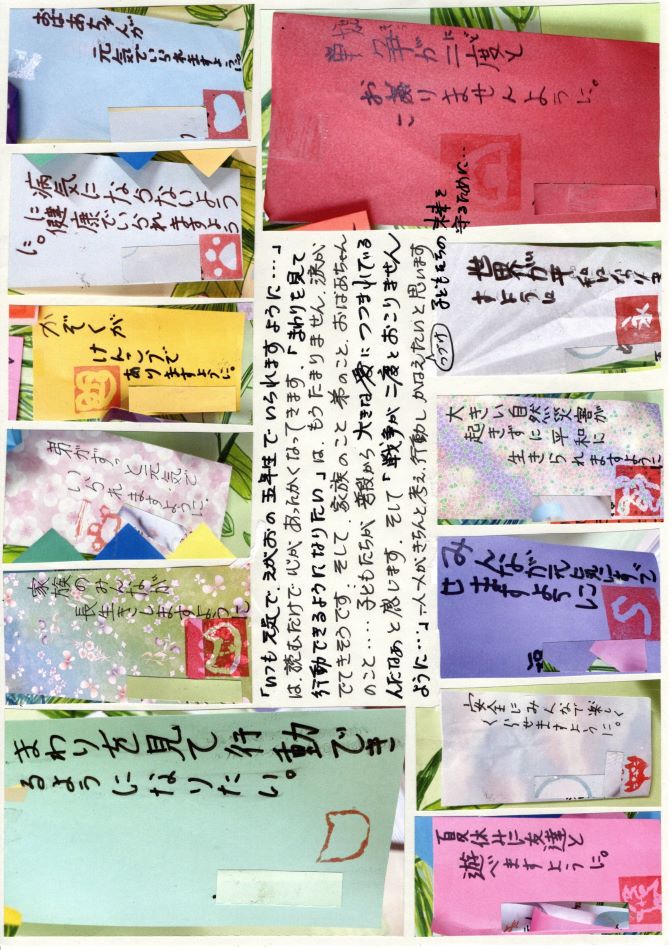 おばあちゃんが
元気でいられますように。
戦争が二度と
おこりませんように。
病気にならないよう
に健康でいられますよう
に。
世界が平和になりま
すように
かぞくが
けんこうで
ありますように。
大きい自然災害が
起きずに平和に
生きられますように
弟がずっと元気で
いられますように。
みんなが元気にすご
せますように
家族のみんなが
長生きしますように
安全にみんなで楽しく
くらせますように。
まわりを見て行動でき
るようになりたい。
夏休みに友達と
遊べますように。
「いつも元気で えがおの五年生でいられますように…」
は、読むだけで 心が あったかくなってきます。「まわりを見て
行動できるようになりたい」は、もうたまりません。涙が
でてきそうです。そして 家族のこと 弟のこと、おばあちゃん
のこと… 子どもたちが 普段から 大きな愛につつまれている
んだなあと 感じます。そして「戦争が二度とおこりません
ように…」一人一人がきちんと考え、行動し かなえたいと思います
つづけ
子どもたちの未来を
守るために…